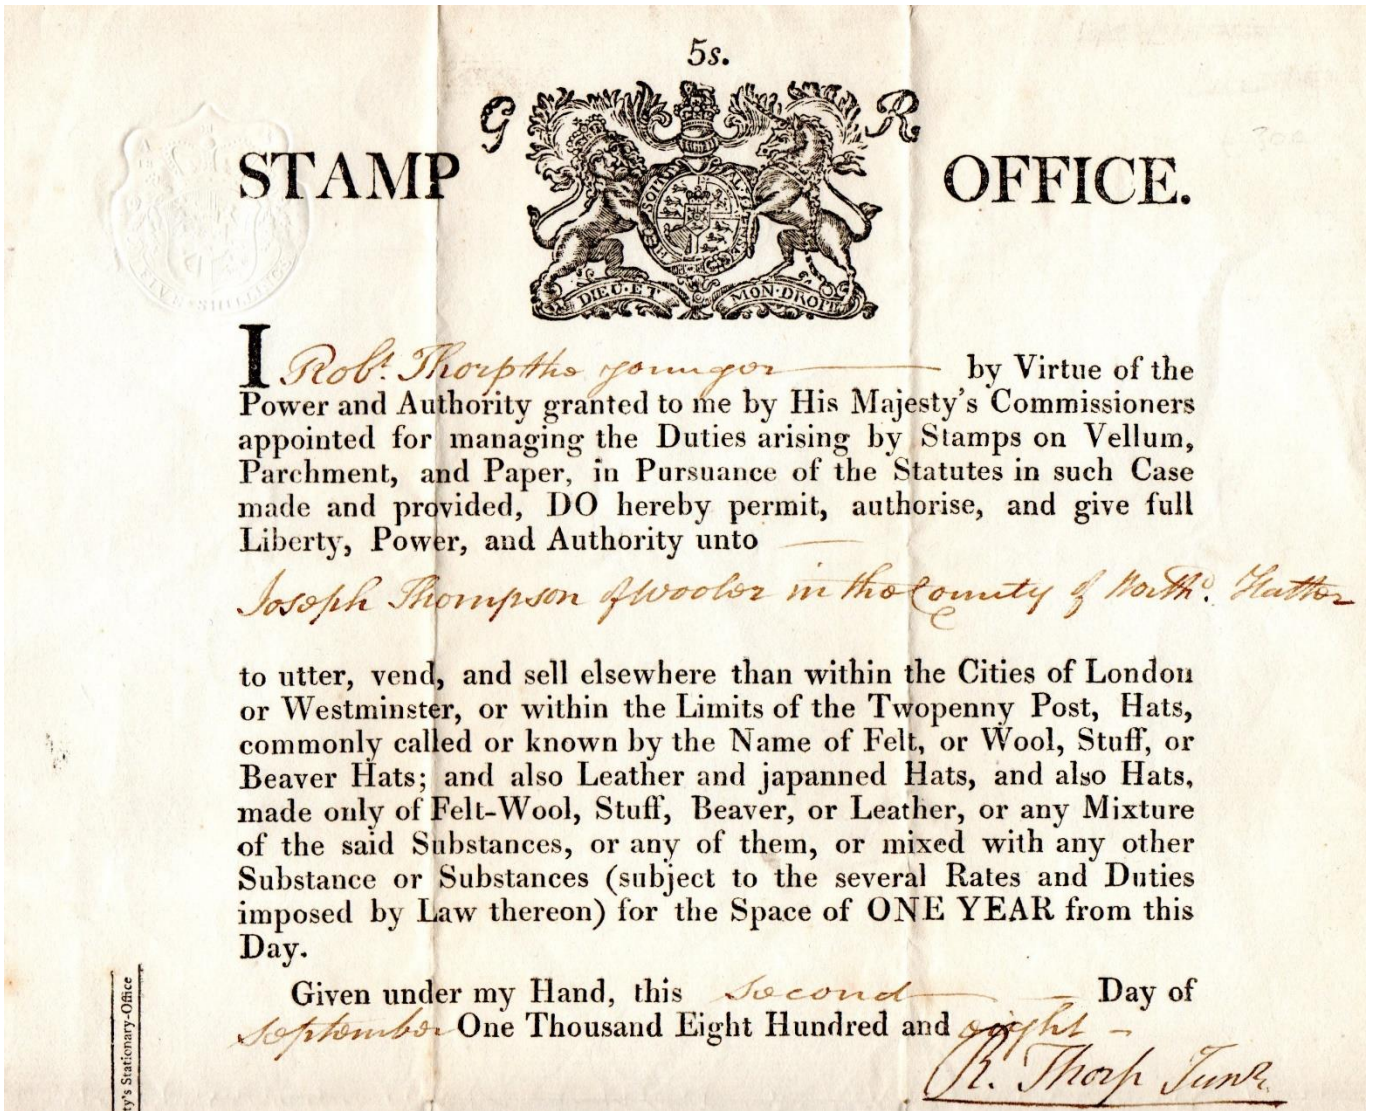 5s.
G R
STAMP OFFICE.
SOIT QUI MAL Y PENSE
DIEU·ET MON·DROIT
FIVE·SHILLINGS
I Robt. Thorp the younger by Virtue of the
Power and Authority granted to me by His Majesty's Commissioners
appointed for managing the Duties arising by Stamps on Vellum,
Parchment, and Paper, in Pursuance of the Statutes in such Case
made and provided, DO hereby permit, authorise, and give full
Liberty, Power, and Authority unto
Joseph Thompson of Wooler in the County of Northd. Hatter
to utter, vend, and sell elsewhere than within the Cities of London
or Westminster, or within the Limits of the Twopenny Post, Hats,
commonly called or known by the Name of Felt, or Wool, Stuff, or
Beaver Hats; and also Leather and japanned Hats, and also Hats,
made only of Felt-Wool, Stuff, Beaver, or Leather, or any Mixture
of the said Substances, or any of them, or mixed with any other
Substance or Substances (subject to the several Rates and Duties
imposed by Law thereon) for the Space of ONE YEAR from this
Day.
Given under my Hand, this second Day of
September One Thousand Eight Hundred and eight
R. Thorp Junr.
ty's Stationary-Office